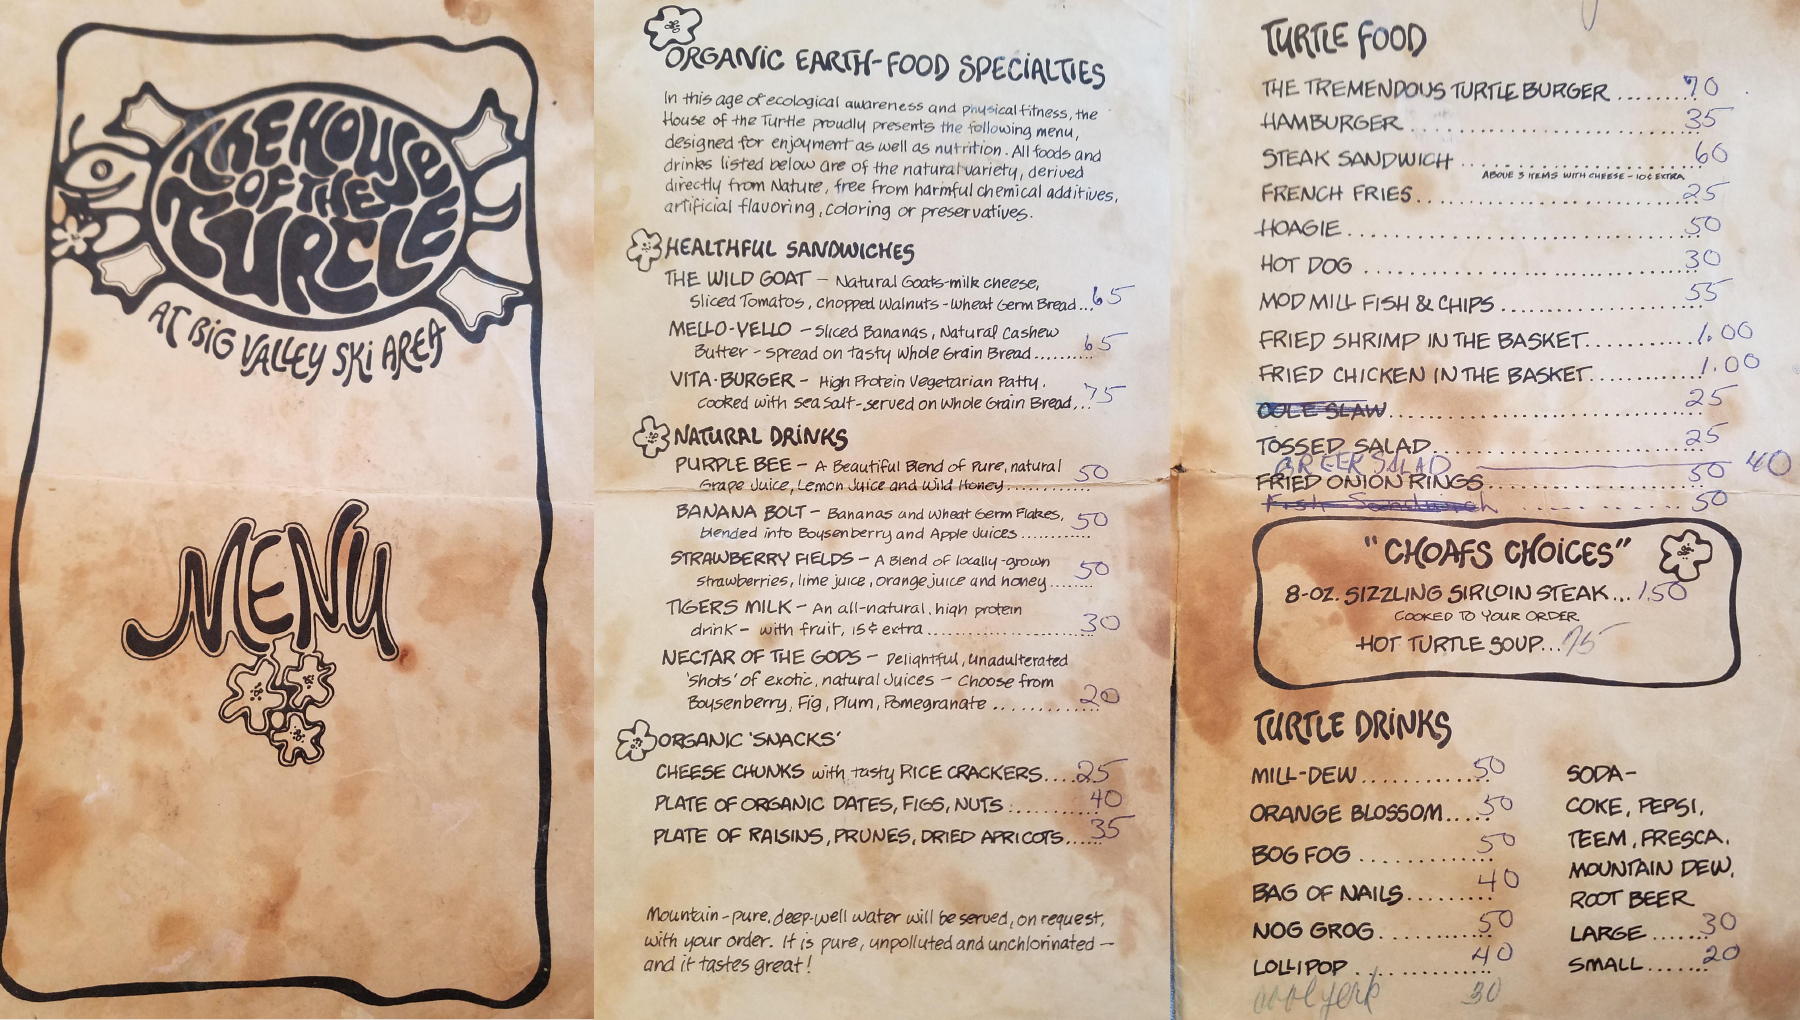 THE HOUSE
OF THE
TURTLE
AT BIG VALLEY SKI AREA
MENU
ORGANIC EARTH-FOOD SPECIALTIES
In this age of ecological awareness and physical fitness, the
House of the Turtle proudly presents the following menu,
designed for enjoyment as well as nutrition. All foods and
drinks listed below are of the natural variety, derived
directly from Nature, free from harmful chemical additives,
artificial flavoring, coloring or preservatives.
HEALTHFUL SANDWICHES
THE WILD GOAT – Natural Goats-milk cheese,
Sliced Tomatos, chopped Walnuts - Wheat Germ Bread... 65
MELLO-YELLO – Sliced Bananas, Natural Cashew
Butter - spread on tasty Whole Grain Bread........ 65
VITA-BURGER – High Protein Vegetarian Patty.
cooked with sea salt - served on Whole Grain Bread... 75
NATURAL DRINKS
PURPLE BEE – A Beautiful Blend of Pure, natural
Grape Juice, Lemon Juice and Wild Honey............ 50
BANANA BOLT – Bananas and Wheat Germ Flakes,
blended into Boysenberry and Apple Juices............ 50
STRAWBERRY FIELDS – A Blend of locally-grown
strawberries, lime juice, orange juice and honey....... 50
TIGERS MILK – An all-natural, high protein
drink – with fruit, 15¢ extra........................ 30
NECTAR OF THE GODS – Delightful, Unadulterated
'shots' of exotic, natural Juices – Choose from
Boysenberry, Fig, Plum, Pomegranate .............. 20
ORGANIC 'SNACKS'
CHEESE CHUNKS with tasty RICE CRACKERS.... 25
PLATE OF ORGANIC DATES, FIGS, NUTS ......... 40
PLATE OF RAISINS, PRUNES, DRIED APRICOTS..... 35
Mountain-pure, deep-well water will be served, on request,
with your order. It is pure, unpolluted and unchlorinated –
and it tastes great!
TURTLE FOOD
THE TREMENDOUS TURTLE BURGER ........ 70
HAMBURGER ........................... 35
STEAK SANDWICH ...................... 60
ABOVE 3 ITEMS WITH CHEESE - 10¢ EXTRA
FRENCH FRIES......................... 25
HOAGIE .............................. 50
HOT DOG ............................. 30
MOD MILL FISH & CHIPS ................ 55
FRIED SHRIMP IN THE BASKET........... 1.00
FRIED CHICKEN IN THE BASKET.......... 1.00
COLE SLAW............................ 25
TOSSED SALAD......................... 25
GREEK SALAD 40
FRIED ONION RINGS.................... 50
Fish Sandwich ....... 50
"CHOAFS CHOICES"
8-OZ. SIZZLING SIRLOIN STEAK... 1.50
COOKED TO YOUR ORDER
HOT TURTLE SOUP... 75
TURTLE DRINKS
MILL-DEW ............. 50
ORANGE BLOSSOM..... 50
BOG FOG ............. 50
BAG OF NAILS......... 40
NOG GROG............ 50
LOLLIPOP ............. 40
cool jerk 30
SODA-
COKE, PEPSI,
TEEM, FRESCA,
MOUNTAIN DEW,
ROOT BEER
LARGE ....... 30
SMALL....... 20